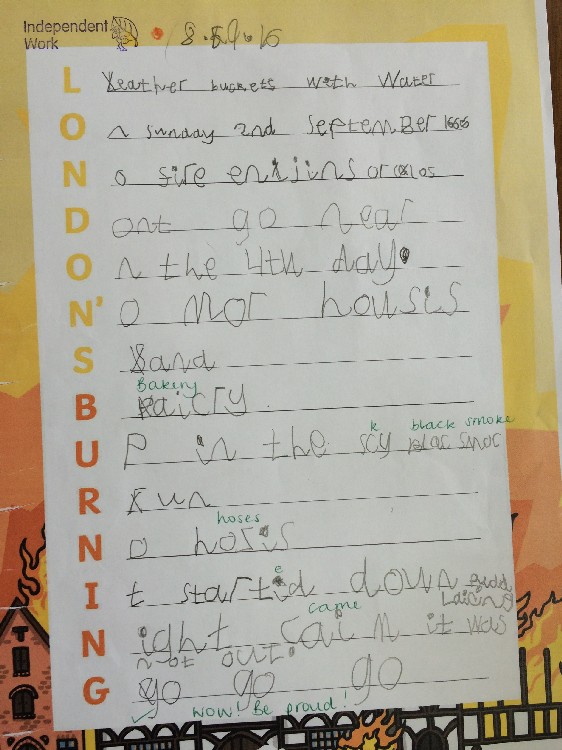 Independent
Work
L Leather buckets with Water
O n sunday 2nd september 1666
N o fire enjins or
D ont go near
O n the 4th day.
N' o mor housis
S Sand
Bakery
B
U P in the scy blac smoc
k black smoke
R Run
hoses
N o hosis
I t startid down Pudd
e
Laicing
came
N ight caim it was
not out.
G go go go
✓ WOW! Be proud!